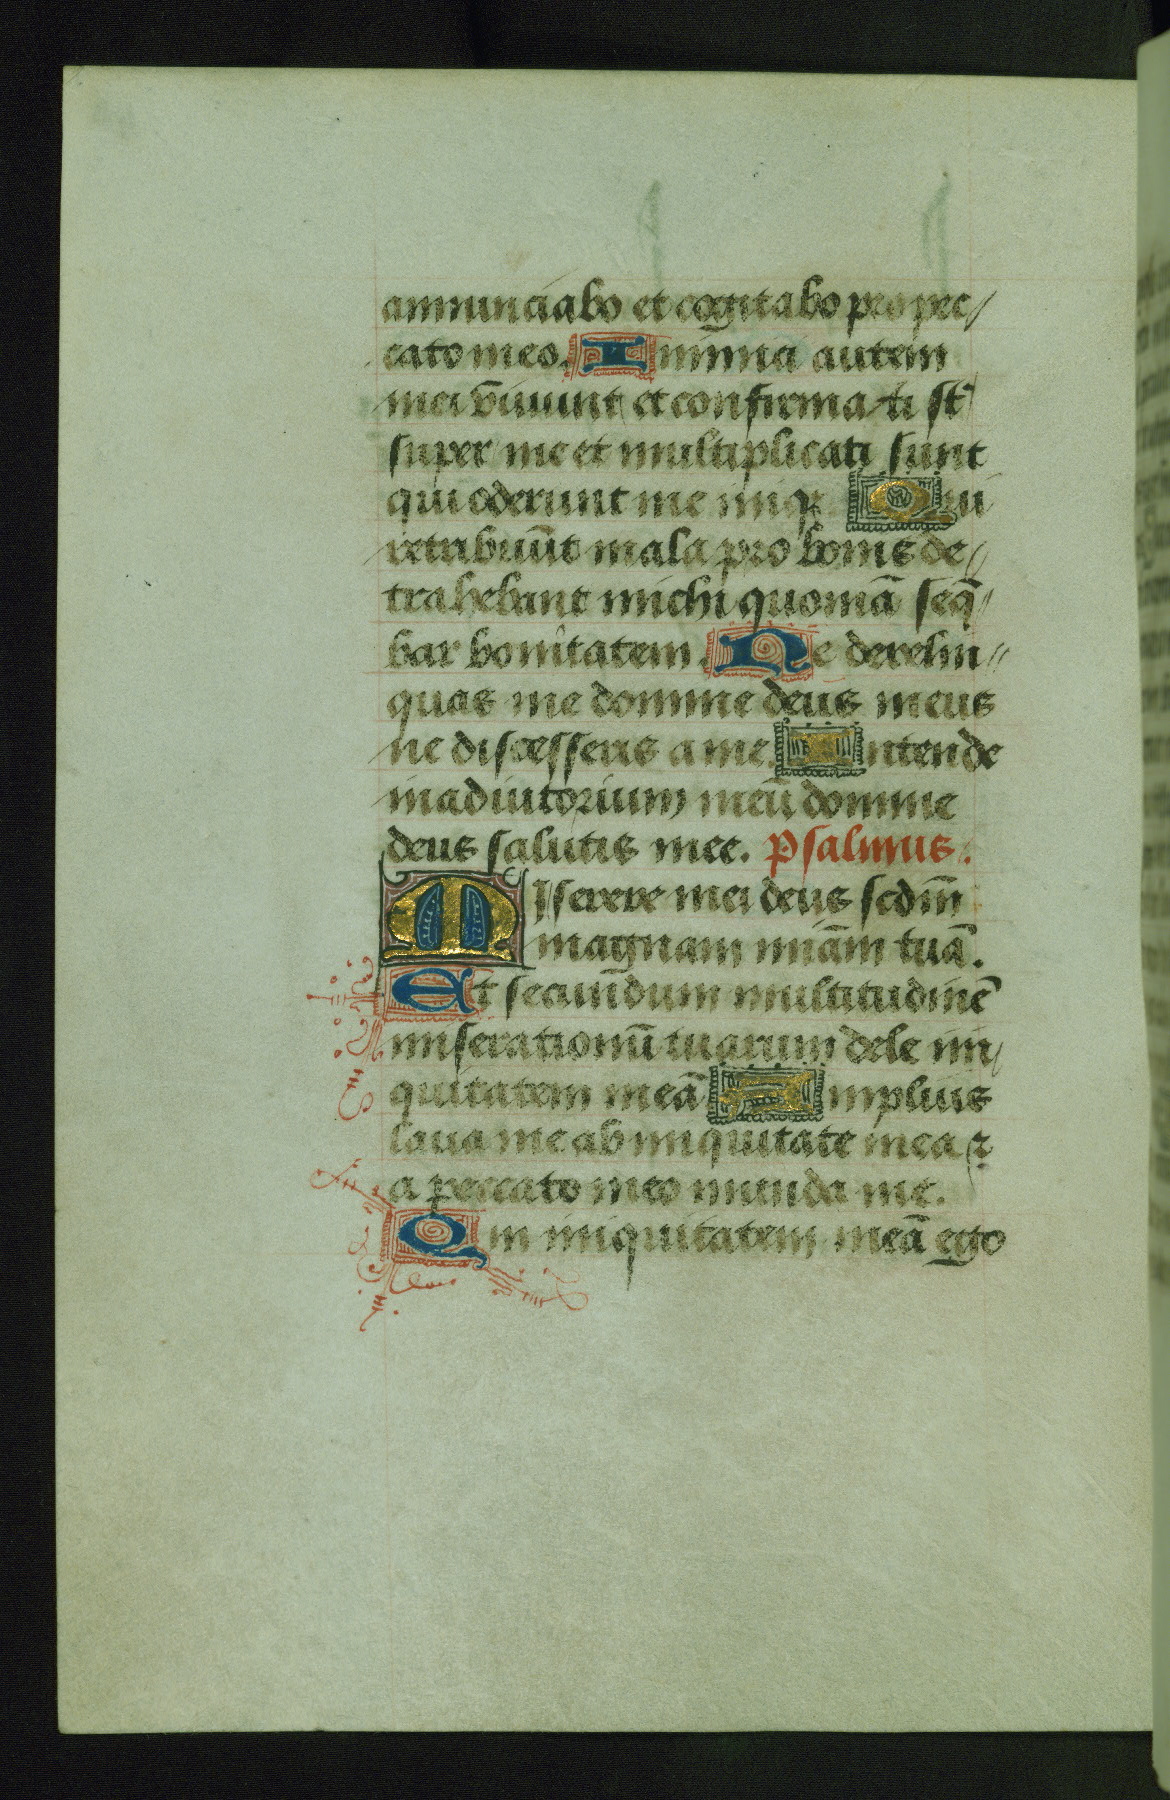 annunciabo et cogitabo pro pec/
cato meo. Inimici autem
mei viuunt et confirmati st̄
super me et multiplicati sunt
qui oderunt me iniq̄ Qui
retribuūt mala pro bonis de//
trahebant michi quoniā seq̄//
bar bonitatem. Ne derelin//
quas me domine deus meus
ne discesseris a me. Intende
in adiutorium meū domine
deus salutis mee. Psalmus.
Miserere mei deus scdm̄
magnam miā̄m tuā.
Et secundum multitudinē
miserationū tuarum dele ini/
quitatem meā Amplius
laua me ab iniquitate mea ⁊
a peccato meo munda me.
Qm iniquitatem meā ego